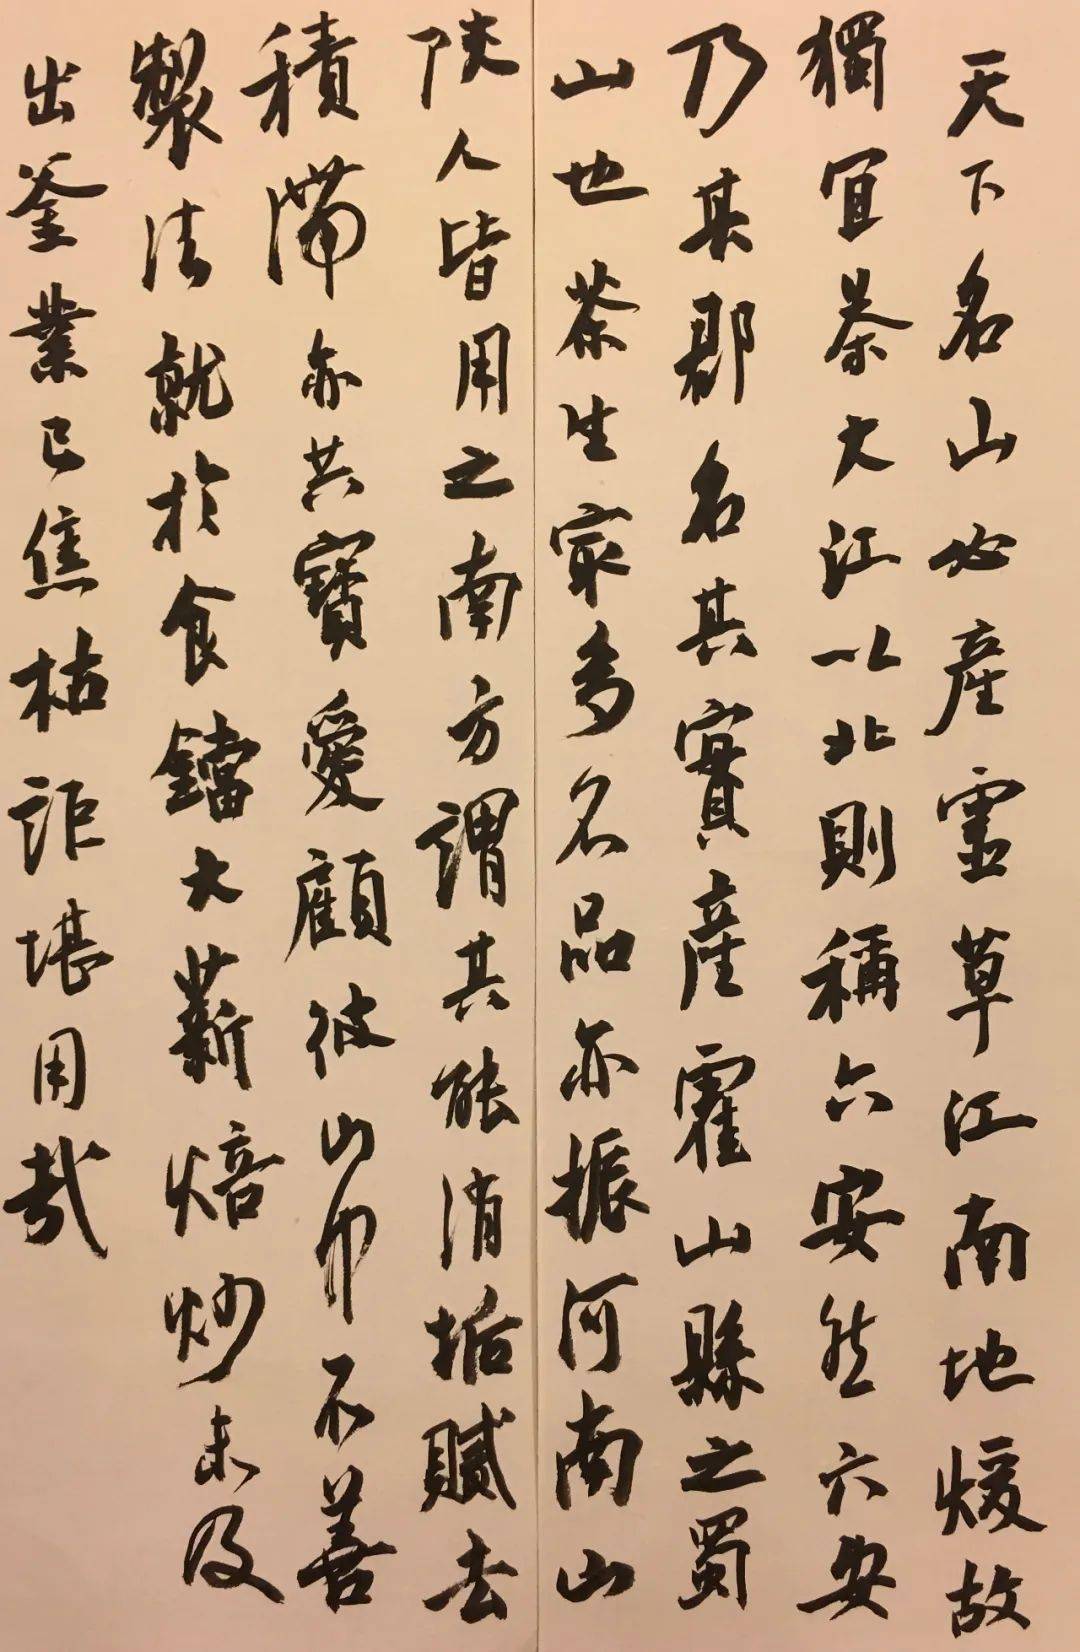 天下名山必產靈草江南地煖故
獨宜茶大江以北則稱六安然六安
乃其郡名其實產霍山縣之蜀
山也茶生最多名品亦振河南山
陝人皆用之南方謂其能消垢膩去
積滯亦共寶愛顧彼山中不善
製法就於食鐺大薪焙炒未及
出釜業已焦枯詎堪用哉